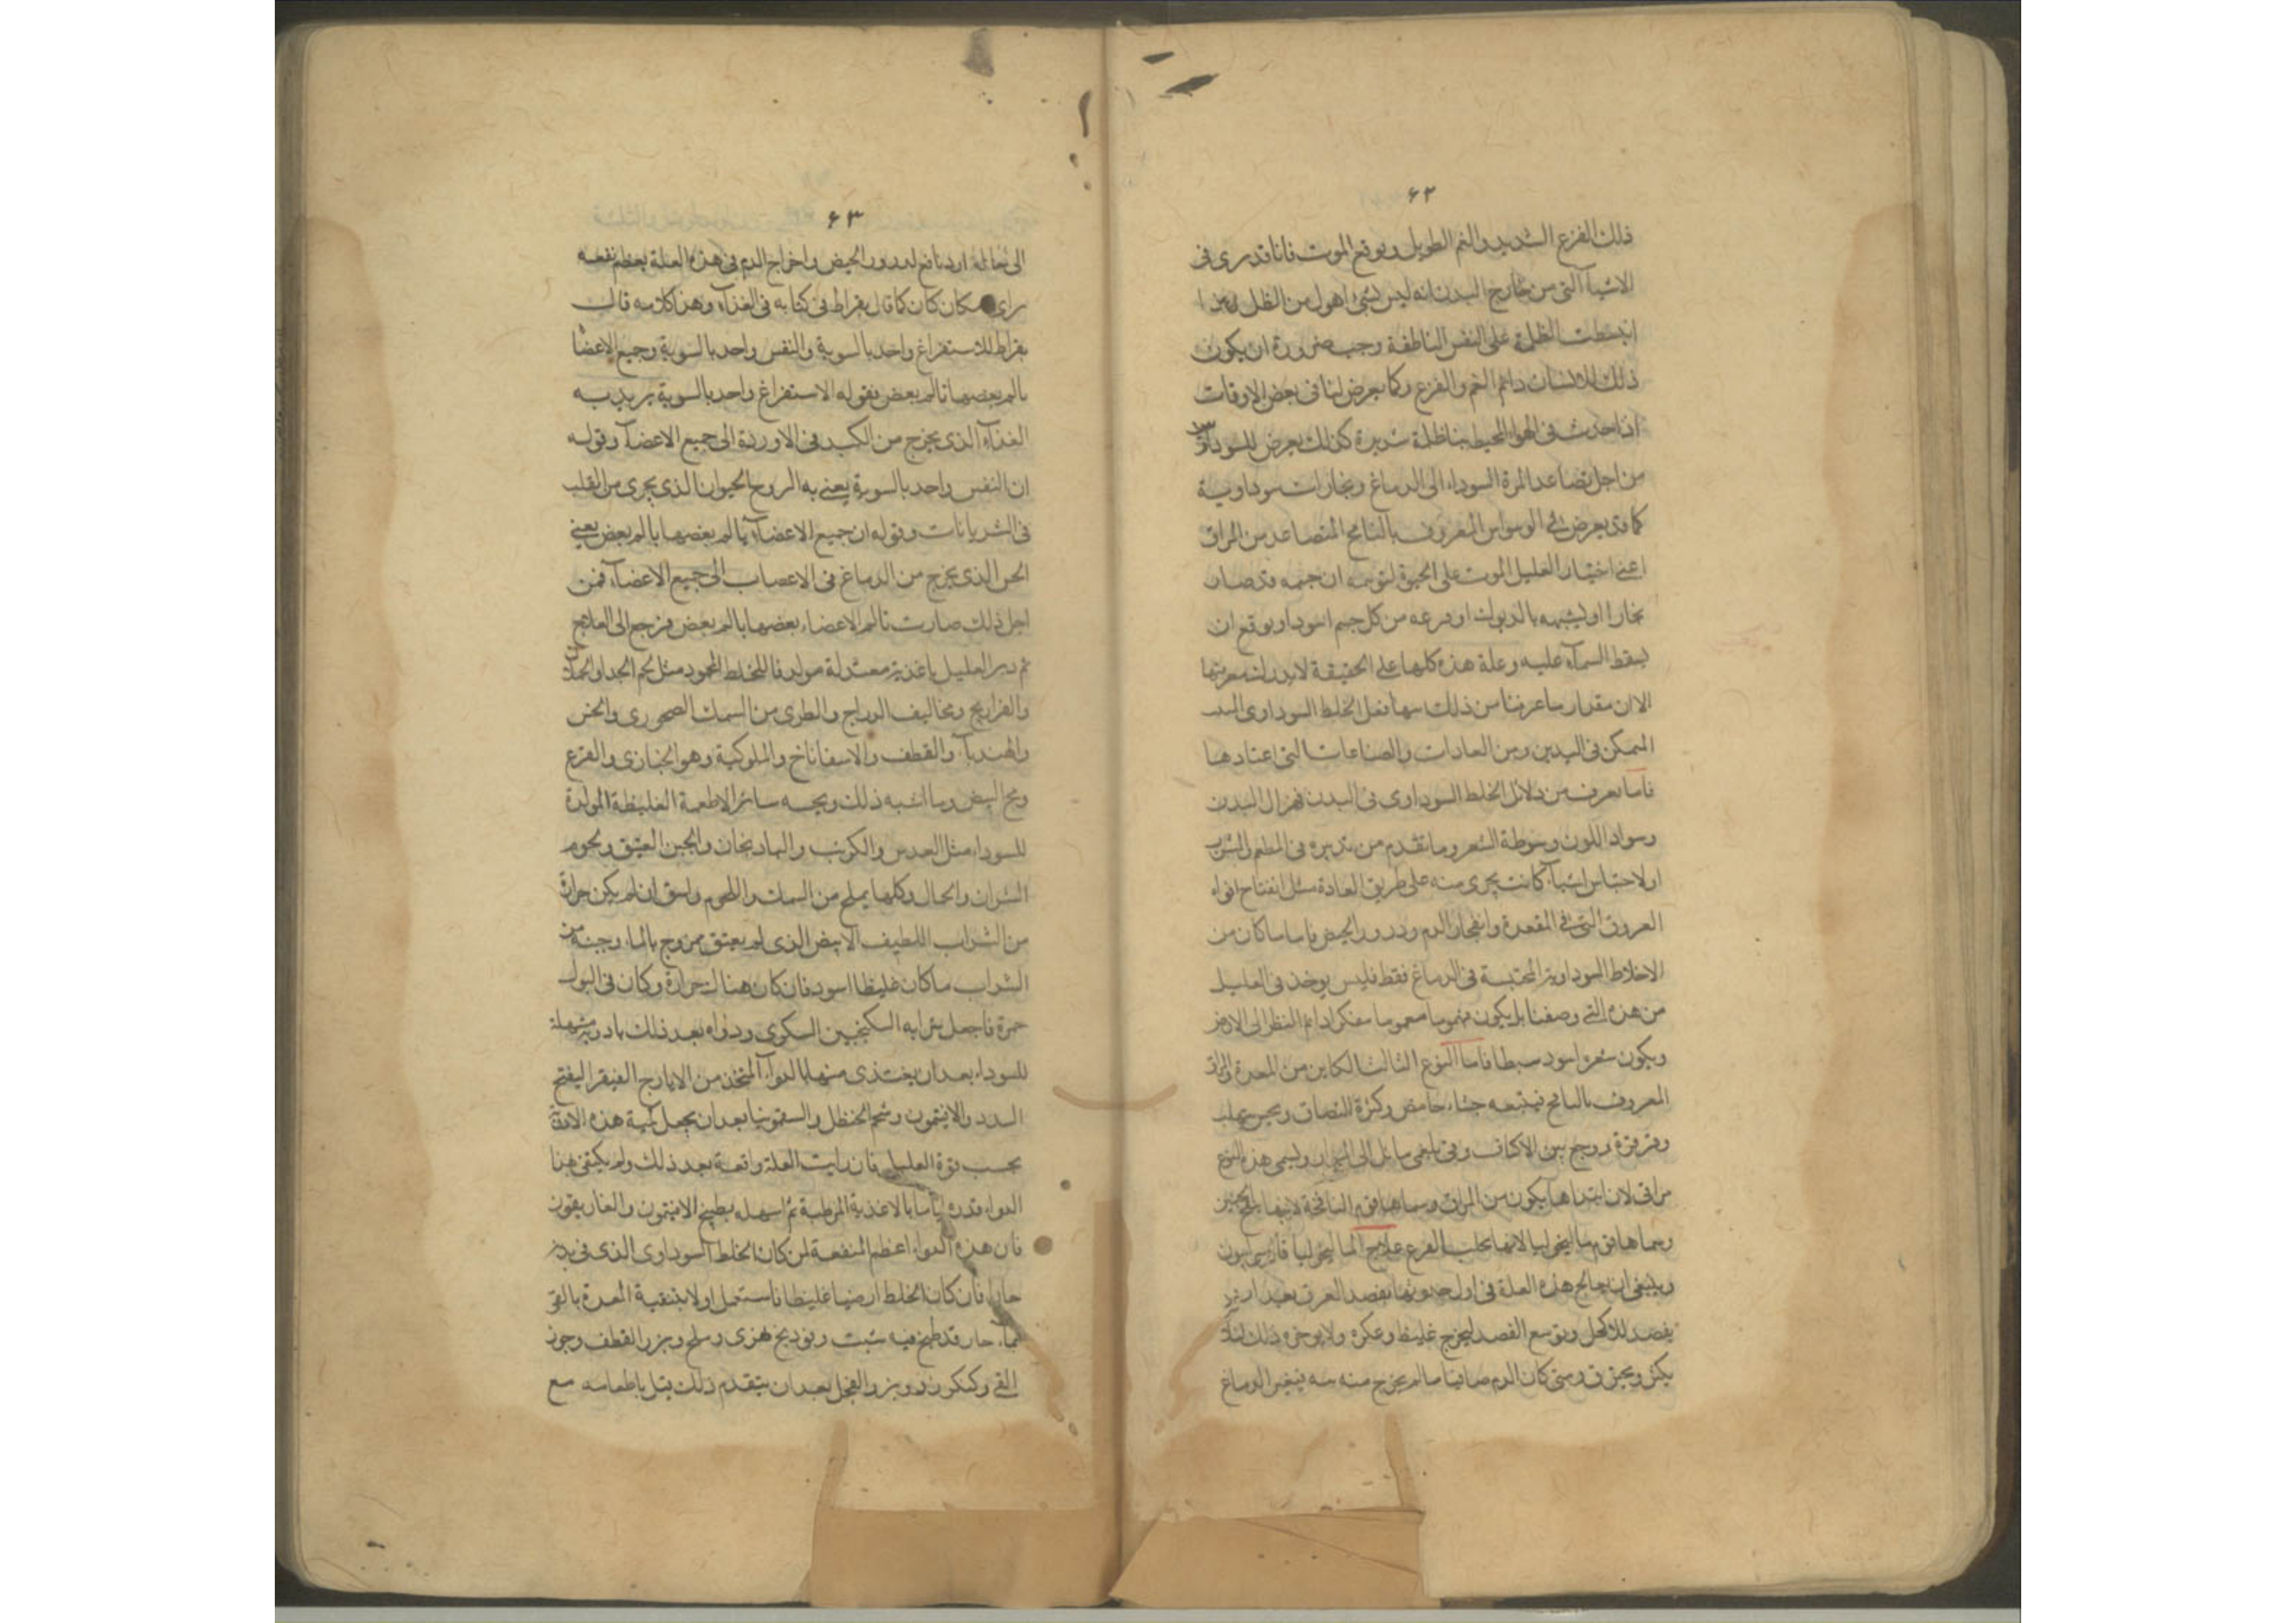 ۶۲
ذلك الفزع الشديد والغم الطويل وتوقع الموت فانا قد نرى فى
الاشيآ التى من خارج البدن انه ليس شئ اهول من الظلمة
انبسطت الظلمة على النفس الناطقة وجب ضرورة ان يكون
ذلك الانسان دائم الغم والفزع وكما يعرض لنا فى بعض الاوقات
اذا حدث فى الهوا المحيط بنا ظلمة شديدة كذلك يعرض للسوداو
من اجل تصاعد المرة السوداء الى الدماغ وبخارات سوداوية
كما قد يعرض فى الوسواس المعروف بالنافخ المتصاعد من المراق
اعنى اختيار العليل الموت على الحيوة لتوهمه ان جسمه قد صار
بخارا او تشبهه بالديوك او فزعه من كل جسم اسود او توقع ان
يسقط السمآء عليه وعلة هذه كلها على الحقيقة لا يدرك معرفتها
الا ان مقدار ما عرفنا من ذلك سها فعل الخلط السوداوى
المتمكن فى البدن ومن العادات والصناعات التى اعتادها
فاما تعرف من دلائل الخلط السوداوى فى البدن فهزال البدن
وسواد اللون وسبوطة الشعر وما تقدم من تدبيره فى المطعم والمشرب
او لاحتباس اشيآء كانت يجرى منه على طريق العادة مثل انفتاح افواه
العروق التى فى المقعدة وانفجار الدم ودرور الحيض فاما ما كان من
الاخلاط السوداوية المحتبسة فى الدماغ فقط فليس يوخذ فى العليل
من هذه التى وصفنا بل يكون مهموما مغموما مفكرا دائم النظر الى الارض
ويكون شعره اسود سبطا فاما النوع الثالث الكاين من المعدة والمراق
المعروف بالنافخ فيتبعه جشاء حامض وكثرة البصاق
وقرقرة ووجع بين الاكتاف وقى بلغمى مائل الى ويسمى هذه النوع
مراقى لان ابتداها يكون من المراق وسماها قوم النافخة لانها
وسماها قوم ماليخوليا لانها تجلب الفزع علاج الماليخوليا
وينبغى ان يعالج هذه العلة فى اول حدوثها بفصد العرق بعد ان
يفصد للاكحل ويوسع الفصد ليخرج غليظه وعكره ولا يوخره ذلك لئلا
يكثر ويحترق ومتى كان الدم صافيا ما لم يخرج منه منه فيتغير الدماغ
۶۳
الى حاله اردنا فع لدرور الحيض واخراج الدم فى هذه العلة يعظم نفعه
راى مكان كان كما قال بقراط فى كتابه فى الغذآء وهذا كلامه قال
بقراط للاستفراغ واحد بالسوية والنفس واحد بالسوية وجميع الاعضآ
يالم بعضها تالم بعض بقوله الاستفراغ واحد بالسوية يريد به
الغذآء الذى يخرج من الكبد فى الاوردة الى جميع الاعضآء وقوله
ان النفس واحد بالسوية يعنى به الروح الحيوانا الذى يجرى من القلب
فى الشريانات وقوله ان جميع الاعضآء يالم بعضها بالم بعض يعنى
الحس الذى يخرج من الدماغ فى الاعصاب الى جميع الاعضآء فمن
اجل ذلك صارت تالم الاعضاء بعضها بالم بعض فنرجع الى العلاج
ثم دبر العليل باغذية معتدلة مولدة للخلط المحمود مثل لحم الجدا والحملان
والفراريج ومخاليف الدراج والطرى من السمك الصخورى والخس
والهندبآ والقطف والاسفاناخ والملوكية وهو الخبازى والقرع
ومح البيض وما اشبه ذلك ويجنبه سائر الاطعمة الغليظة المولدة
للسوداء مثل العدس والكرنب والبادنجان والجبن العتيق ولحوم
الثيران والجمال وكلما يملح من السمك واللحوم واسق ان لم يكن حرارة
من الشراب اللطيف الابيض الذى لم يعتق ممزوج بالماء وجنبه من
الشراب ما كان غليظا اسود فان كان هناك حرارة وكان فى البول
حمرة فاجعل شرابه السكنجبين السكرى ودواه بعد ذلك بادوية مسهلة
للسوداء بعد ان يغتذى منها بالدوآء المتخذ من الايارج الفيقرا ليفتح
السدد والافتيمون وشحم الحنظل والسقمونيا بعد ان يجعل كمية هذه الادوية
بحسب قوة العليل فان رايت العلة واقعة بعد ذلك ولم يكتفى هذا
الدواء فدبره اياما بالاغذية المرطبة ثم اسهله بطبيخ الافتيمون والغاريقون
فان هذه الدواء اعظم المنفعة لمن كان الخلط السوداوى الذى فى بدنه
حارا فان كان الخلط ارضيا غليظا فاستعمل اولا بتنقية المعدة بالقى
بمآء حار قد طبخ فيه شبت وفودنج نهرى وملح وبزر القطف وجوز
القى وكنكرزد وبزر الفجل بعد ان يتقدم ذلك بتل باطعامه مع